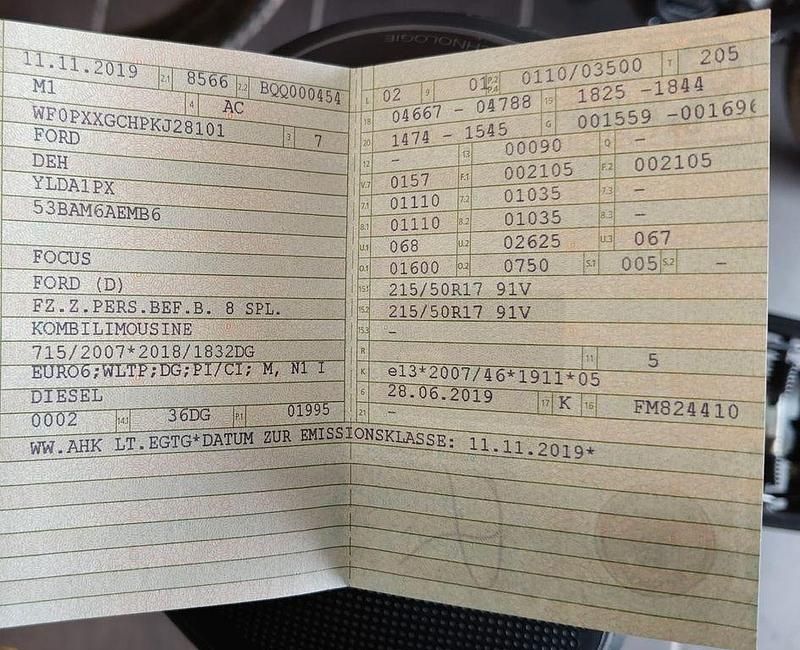 CHNOLOGIE
11.11.2019 2.1 8566 2.2 BQQ000454
M1 4 AC
WF0PXXGCHPKJ28101 3 7
FORD
DEH
YLDA1PX
53BAM6AEMB6
FOCUS
FORD (D)
FZ.Z.PERS.BEF.B. 8 SPL.
KOMBILIMOUSINE
715/2007*2018/1832DG
EURO6;WLTP;DG;PI/CI; M, N1 I
DIESEL
0002 14.1 36DG P.1 01995
L 02 9 01 P.2 P.4 0110/03500 T 205
18 04667 - 04788 19 1825 -1844
20 1474 - 1545 G 001559 -001696
12 - 13 00090 Q -
V.7 0157 F.1 002105 F.2 002105
7.1 01110 7.2 01035 7.3 -
8.1 01110 8.2 01035 8.3 -
U.1 068 U.2 02625 U.3 067
O.1 01600 O.2 0750 S.1 005 S.2 -
15.1 215/50R17 91V
15.2 215/50R17 91V
15.3 -
R 11 5
K e13*2007/46*1911*05
6 28.06.2019 17 K 16 FM824410
21 -
WW.AHK LT.EGTG*DATUM ZUR EMISSIONSKLASSE: 11.11.2019*